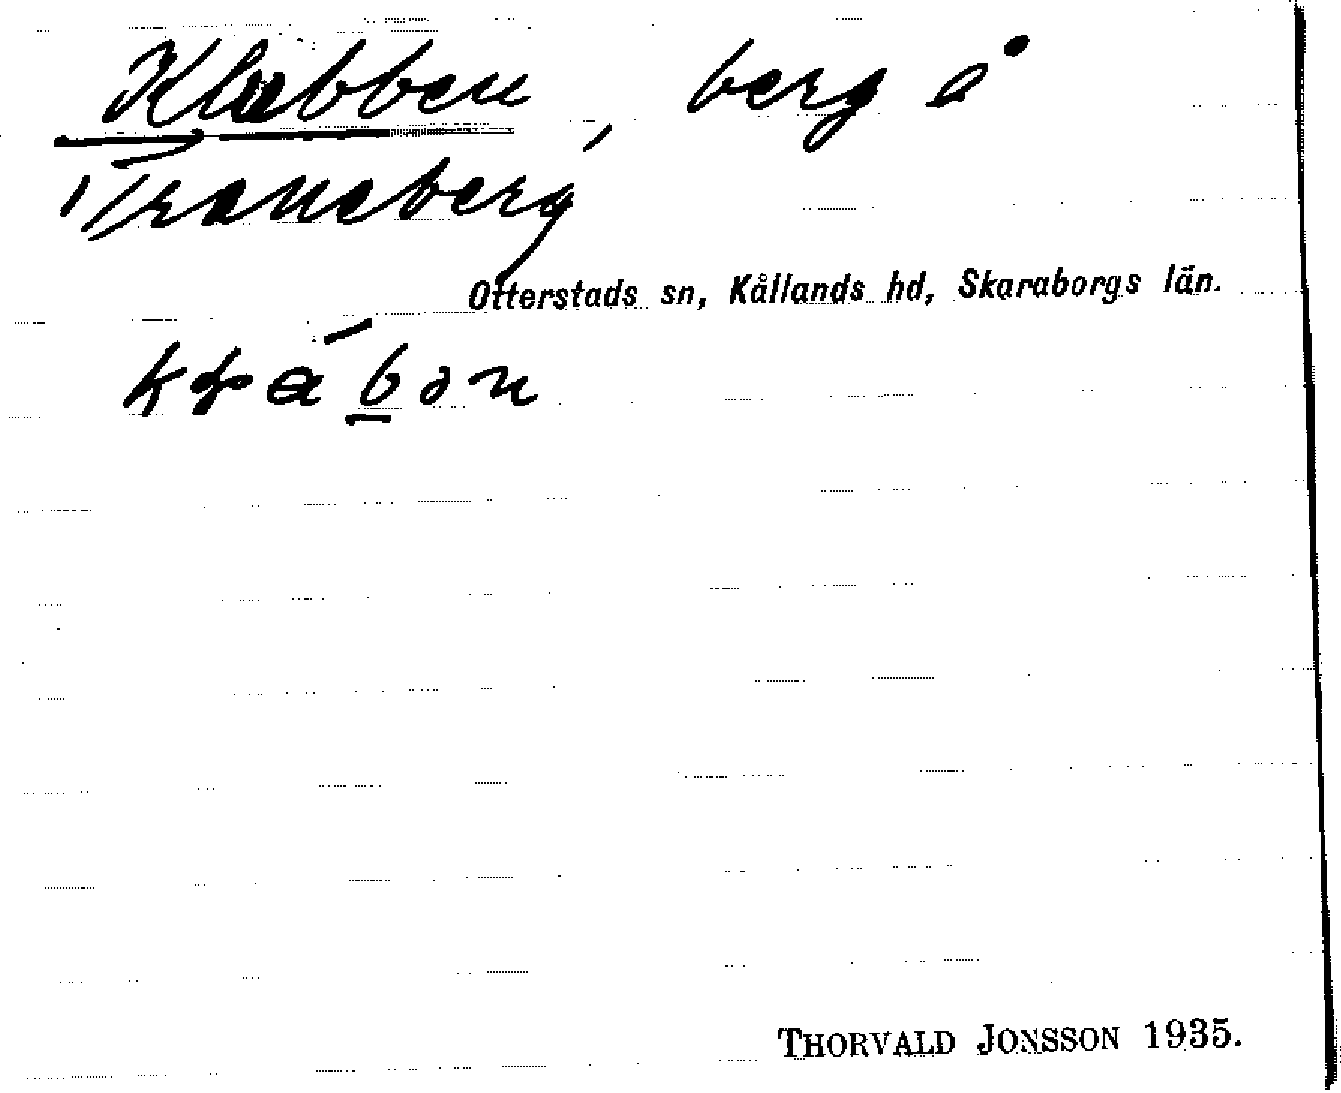 Klabben, berg å
Traneberg
Otterstads sn, Kållands hd, Skaraborgs län.
THORVALD JONSSON 1935.